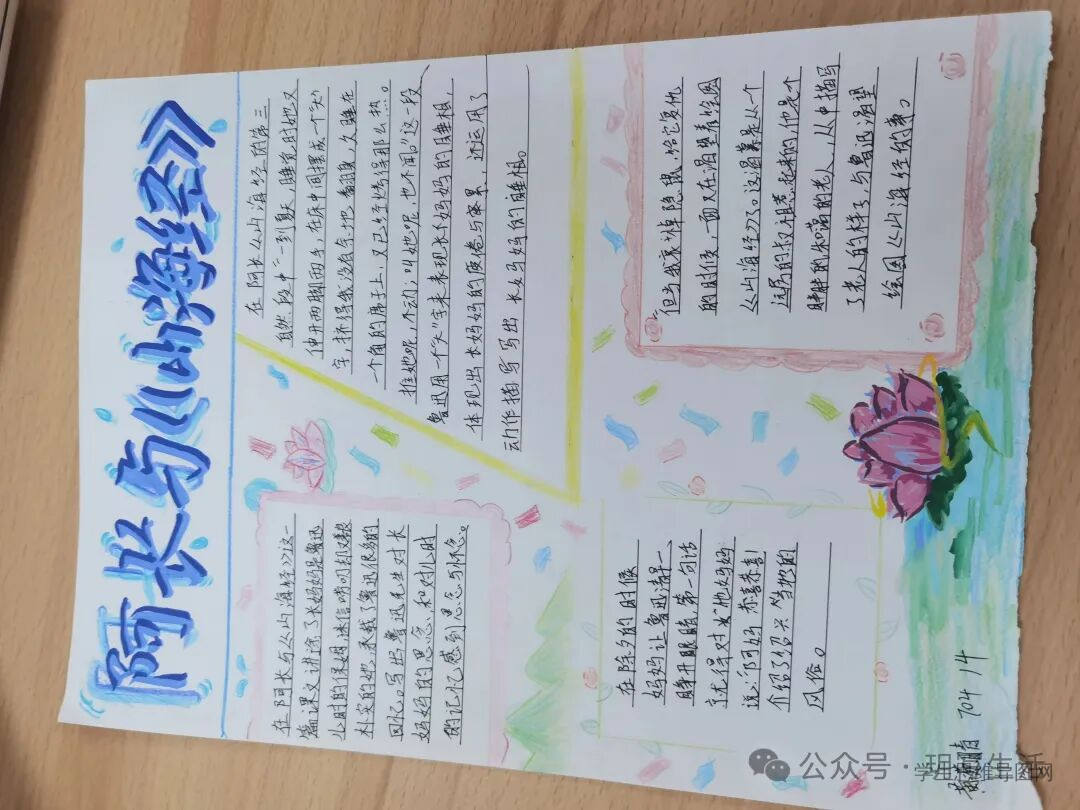 阿长与《山海经》
在阿长与《山海经》这一
篇课文讲述了长妈妈是鲁迅
儿时的保姆,迷信唠叨却又
朴实的她,承载了鲁迅很多的
回忆。写出鲁迅先生对长
妈妈的思念,和对儿时
的记忆感到思念与怀念。
在阿长《山海经》的第三
自然段中“一到夏天,睡觉时她又
伸开两脚两手,在床中间摆成一个“大”
字,挤得我没余地翻身,久睡在
一个角的席子上,又已经烤得那么热。
推她呢,不动;叫她呢,也不闻。”这一段
鲁迅用一个“大”字来表现长妈妈的睡相,
体现出长妈妈的疲倦与劳累,还运用了
动作描写写出长妈妈的睡相。
在除夕的时候
妈妈让鲁迅清早一
睁开眼睛,第一句话
就得对她
说:“阿妈,恭喜恭喜”
介绍了绍兴当地的
风俗。
但当我哀悼隐鼠,给它复仇
的时候,一面又在渴慕着绘图
《山海经》了。这渴慕是从一个
远房的叔祖惹起来的,他是个
胖胖的和蔼的老人,从中描写
了老人的样子与鲁迅渴望
绘图《山海经》的事。
704 14
公众号·